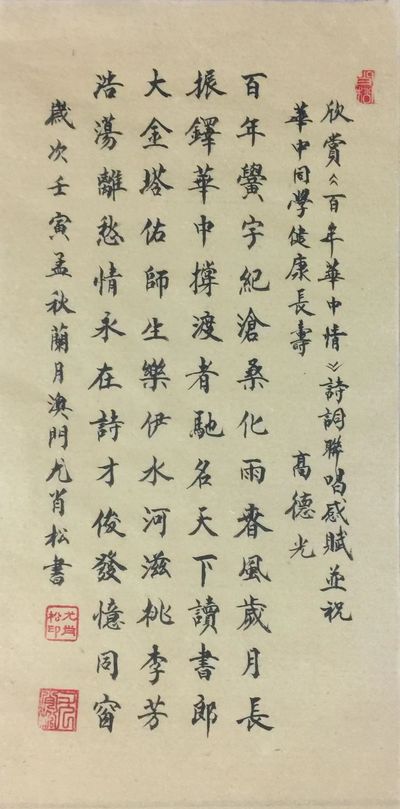 欣賞《百年華中情》詩詞聯唱感賦並祝
華中同學健康長壽 高德光
百年黌宇紀滄桑化雨春風歲月長
振鐸華中撙渡者馳名天下讀書郎
大金塔佑師生樂伊水河滋桃李芳
浩蕩離愁情永在詩才俊發憶同窗
歲次壬寅孟秋蘭月澳門尤肖松書
尤肖松印